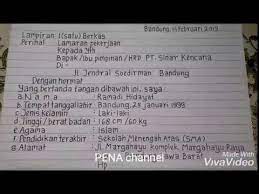 Bandung, 15 Februari 2019
Lampiran 1 (satu) Berkas
Perihal Lamaran pekerjaan
Kepada Yth
Bapak/Ibu pimpinan/HRD PT. Sinar Kencana
Di -
Jl Jendral Soedirman Bandung
Dengan hormat
Yang bertanda tangan dibawah ini, saya :
a. Nama : Ramadi Hidayat
b. Tempat tanggal lahir : Bandung, 28 Januari 1998
c. Jenis kelamin : Laki-laki
d. Tinggi / berat badan : 168 cm / 60 kg
e. Agama : Islam
f. Pendidikan terakhir : Sekolah Menengah Atas (SMA)
g. Alamat : Jl. Margahayu komplek, Margahayu Raya
Jawa Barat
Hp
PENA channel
Made With
VivaVideo